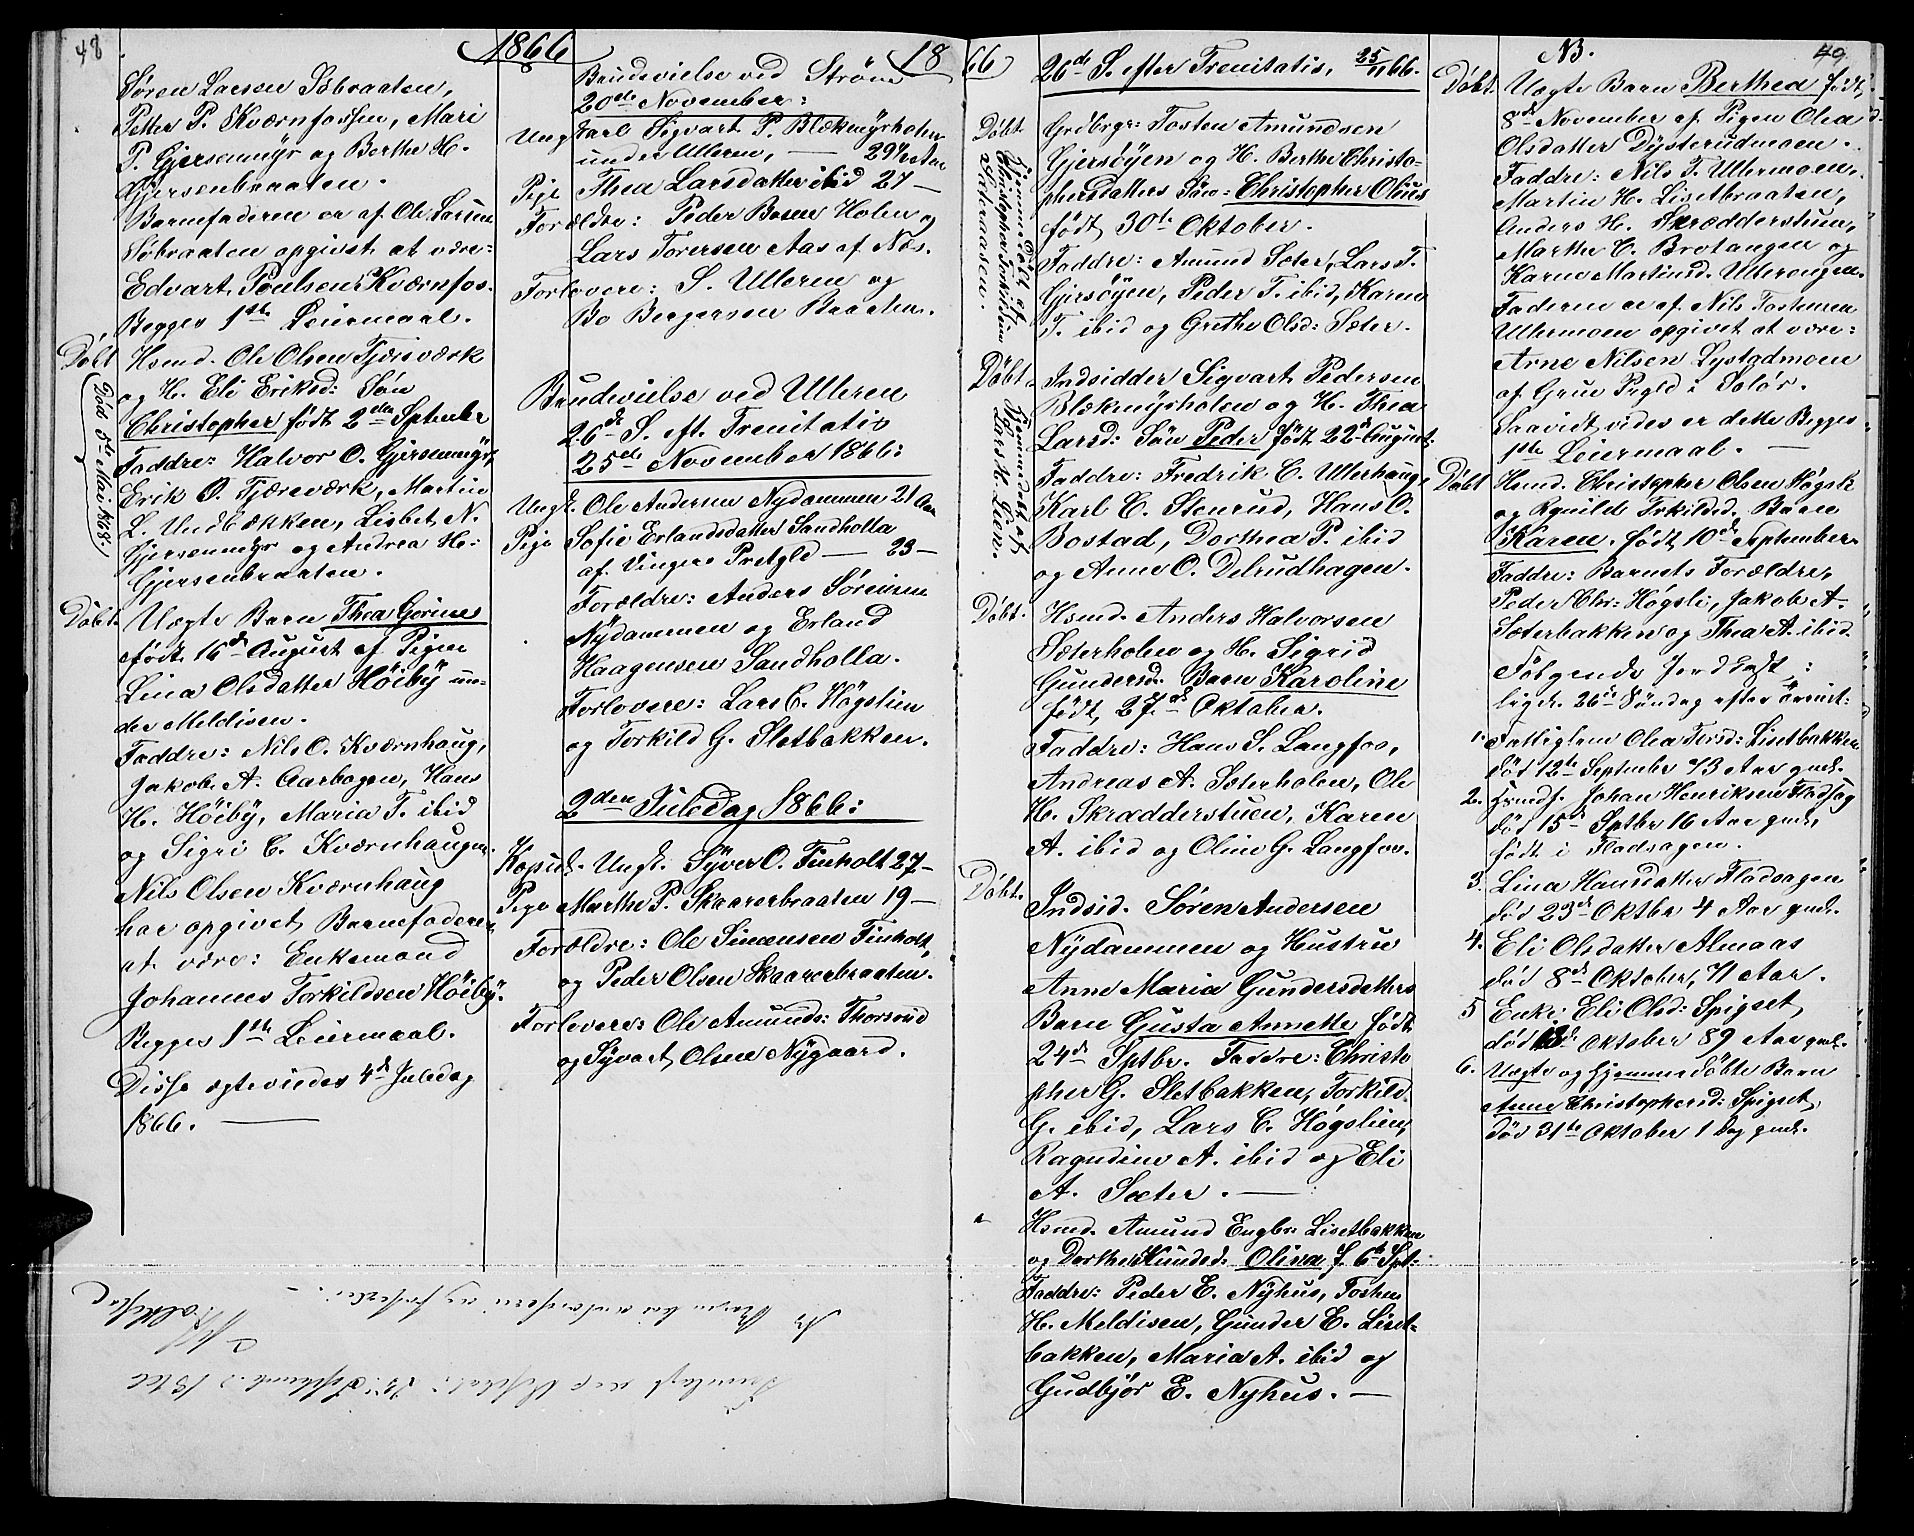 48
1866
Søren Larsen Sobraaten,
Petter P. Kværnfossen, Mari
P. Gjersenmyr og Berthe H.
Gjersenbraaten.
Barnefaderen er af Ole Larsen
Sobraaten opgivet at være:
Edvart Poulsen Kværnfos.
Begges 1ste Leiermaal.
Døbt Hsmd. Ole Olsen Tjæreværk
og H. Eli Eriksd: Søn
Christopher født 2den Septembr
Død 5te Mai 1868.
Faddre: Halvor O. Gjersenmyr,
Erik O. Tjæreværk, Martin
L. Undbækken, Lisbet N.
Gjersenmyr og Andrea H:
Gjersenbraaten.
Døbt. Uægte Barn Thea Gorine
født 16de August af Pigen
Lina Olsdatter Höiby un-
der Meldisen.
Faddre: Nils O. Kværnhaug,
Jakob A. Aarbogen, Hans
H. Höiby, Maria T. ibid
og Sigri C. Kværnhaugen.
Nils Olsen Kværnhaug
har opgivet Barnefaderen
at være: Enkemand
Johannes Torkildsen Höiby.
Begges 1ste Leiermaal.
Disse ægtevies 4de Juledag
1866.
18
Brudevielse ved Ström
20de November:
Ungkarl Sigvart P. Blækmyrholen
under Ulleren, — 29½ Aar
Pige Thea Larsdatter ibid 27 —
Forældre: Peder Holen og
Lars Torersen Aas af Næs.
Forlovere: S. Ulleren og
Bo Bergersen Braaten.
Brudevielse ved Ulleren
26de S. eft. Trenitatis
25de November 1866:
Ungk. Ole Andersen Nydammen 21 Aar
Pige Sofie Erlandsdatter Sandholla
af Vinger Prstgld — 23 —
Forældre: Anders Sörensen
Nydammen og Erland
Haagensen Sandholla.
Forlovere: Lars C. Högslien
og Torkild G. Sletbakken.
2den Juledag 1866:
Kopul. Ungk. Syver O. Finholt 27 —
Pige Marthe P. Skaarerbraaten 19 —
Forældre: Ole Simensen Finholt,
og Peder Olsen Skaarerbraaten.
Forlovere: Ole Amunds: Thorsrud
og Syvart Olsen Nygaard.
66
26de S. efter Trenitatis, 25/11 66.
Døbt.
Hjemmedøbt af
Christopher Torkildsen
Sæteraasen.
Grdbrgr: Tosten Amundsen
Gjersøyen og H. Berthe Christo-
phersdatters Søn: Christopher Olius
født 30te Oktober.
Faddre: Amund Sæter, Lars T.
Gjersøyen, Peder T. ibid, Karen
T. ibid og Grethe Olsd: Sæter.
Døbt. Indsidder Sigvart Pedersen
Hjemmedøbt af
Lars H. Lien.
Blækmyrholen og H. Thea
Larsd: Søn Peder født 22de August.
Faddre: Fredrik C. Ullerhaug,
Karl C. Stenrud, Hans O.
Bostad, Dorthea P. ibid
og Anne O. Delrudhagen.
Døbt. Hsmd. Anders Halvorsen
Sæterholen og H. Sigrid
Gundersd. Barn Karoline
født 27de Oktober.
Faddre: Hans S. Langfos,
Andreas A. Sæterholen, Ole
H. Skrædderstuen, Karen
A. ibid og Olin G. Langfos.
Døbt. Indsid. Søren Andersen
Nydammen og Hustru
Anne Maria Gundersdatters
Barn Gusta Annette født
24de Sptbr. Faddre: Christo
pher G. Sletbakken, Torkild
G. ibid, Lars C. Høgslien,
Ragndine A. ibid og Eli
A. Sæter. —
Hsmd. Amund Engbr: Lisetbakken
og Dorthe Knudsd: Oliva f. 6te Spt:
Faddre: Peder E. Nyhus, Tosten
H. Meldisen, Gunder E. Liset-
bakken, Maria A. ibid og
Gudbjør E. Nyhus. —
NB.
49
Døbt. Uægte Barn Berthea født
8de November af Pigen Olea
Olsdatter Dysterudmoen.
Faddre: Nils T. Ullermoen,
Martin H. Lisetbraaten,
Anders H. Skrædderstuen,
Marthe C. Brotangen og
Karen Martinsd. Ullerengen.
Faderen er af Nils Tostensen
Ullermoen opgivet at være:
Arne Nilsen Lystadmoen
af Grue Prgld i Solør.
Saavidt vides er dette Begges
1ste Leiermaal. —
Døbt Hsmd. Christopher Olsen Høgsli
og Rgnilde Trkildsd. Barn
Karen, født 10de September.
Faddre: Barnets Forældre,
Peder Chr: Høgsli, Jakob A.
Sæterbakken og Thea A. ibid.
Følgende Jordkast:
liger 26de Søndag efter Trinit:
1. Fattiglem Olea Tersd: Lisetbakken
død 12te September 73 Aar gml.
2. Johan Henriksen Fladsag
død 15de Sptbr 16 Aar gml,
født i Fladsagen.
3. Lina Hansdatter Fladsagen
død 23de Oktbr 4 Aar gml.
4. Eli Olsdatter Almaas
død 8de Oktober, 71 Aar.
5 Enke Eli Olsd: Spigset,
død Oktober 89 Aar gml.
6. Uægte og hjemmedøbte Barn
Anne Christophersd: Spigset,
død 31te Oktober 1 Dag gml.